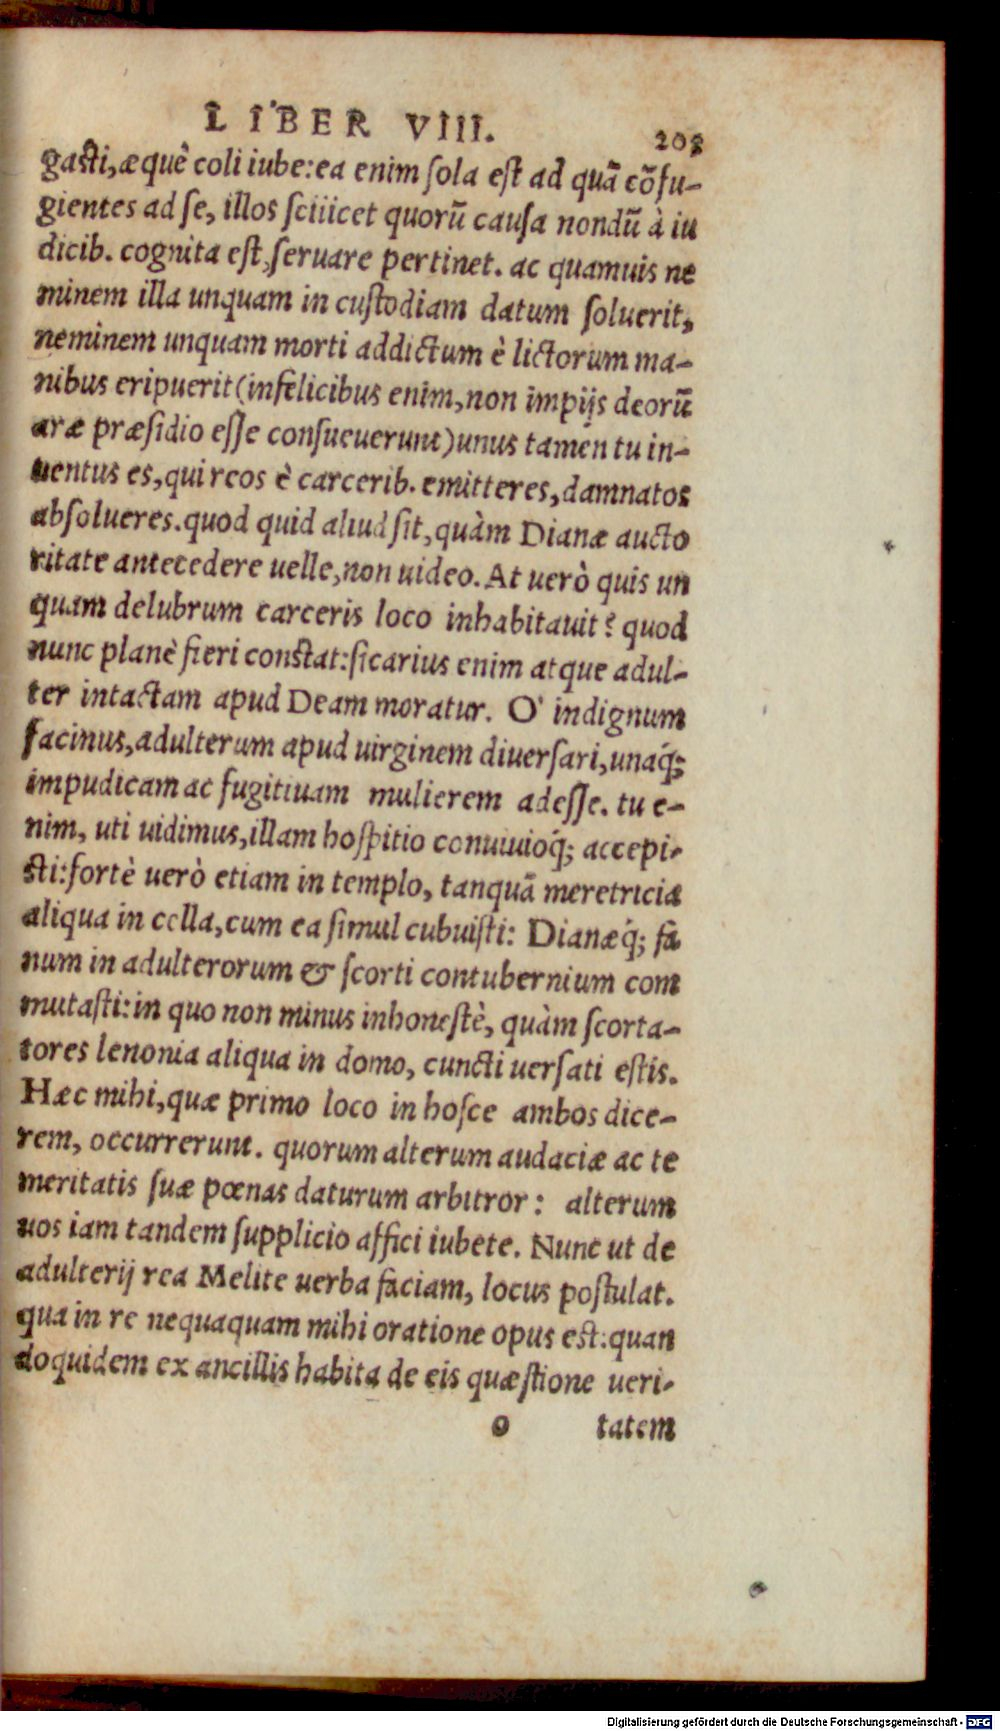 LIBER VIII. 203
gasti, æquè coli iube: ea enim ſola eſt ad quã cõfu-
gientes ad ſe, illos ſciiicet quorũ cauſa nondũ à iu
dicib. cognita eſt, ſeruare pertinet. ac quamuis ne
minem illa unquam in cuſtodiam datum ſoluerit,
neminem unquam morti addictum è lictorum ma-
nibus eripuerit (infelicibus enim, non impijs deorũ
aræ præſidio eſſe conſueuerunt) unus tamen tu in-
uentus es, qui reos è carcerib. emitteres, damnatos
abſolueres. quod quid aliud ſit, quàm Dianæ aucto
ritate antecedere uelle, non uideo. At uerò quis un
quam delubrum carceris loco inhabitauit? quod
nunc planè fieri conſtat: ſicarius enim atque adul-
ter intactam apud Deam moratur. O' indignum
facinus, adulterum apud uirginem diuerſari, unaq́;
impudicam ac fugitiuam mulierem adeſſe. tu e-
nim, uti uidimus, illam hoſpitio conuiuioq́; accepi-
ſti: fortè uerò etiam in templo, tanquã meretricia
aliqua in cella, cum ea ſimul cubuiſti: Dianæq́; fa
num in adulterorum & ſcorti contubernium com
mutaſti: in quo non minus inhoneſtè, quàm ſcorta-
tores lenonia aliqua in domo, cuncti uerſati eſtis.
Hæc mihi, quæ primo loco in hoſce ambos dice-
rem, occurrerunt. quorum alterum audaciæ ac te
meritatis ſuæ pœnas daturum arbitror: alterum
uos iam tandem ſupplicio affici iubete. Nunc ut de
adulterij rea Melite uerba faciam, locus poſtulat.
qua in re nequaquam mihi oratione opus eſt: quan
doquidem ex ancillis habita de eis quæſtione ueri-
o tatem
Digitalisierung gefördert durch die Deutsche Forschungsgemeinschaft - DFG